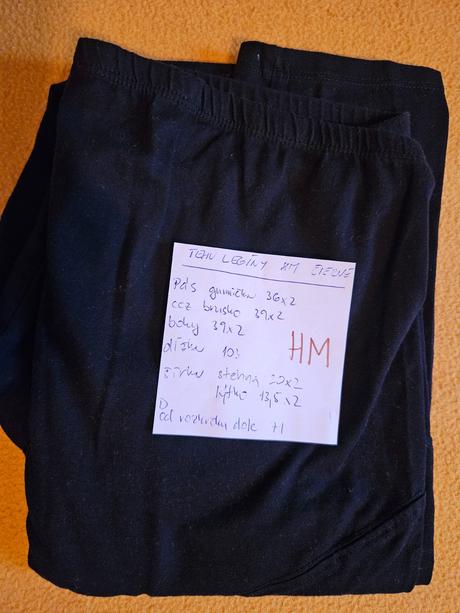 TEHU LEGÍNY HM ČIERNE
Pás gumička 36x2
cez bruško 39x2
boky 39x2
dĺžka 101
HM
šírka stehná 20x2
lýtko 13,5x2
D
od rozkroku dole 71